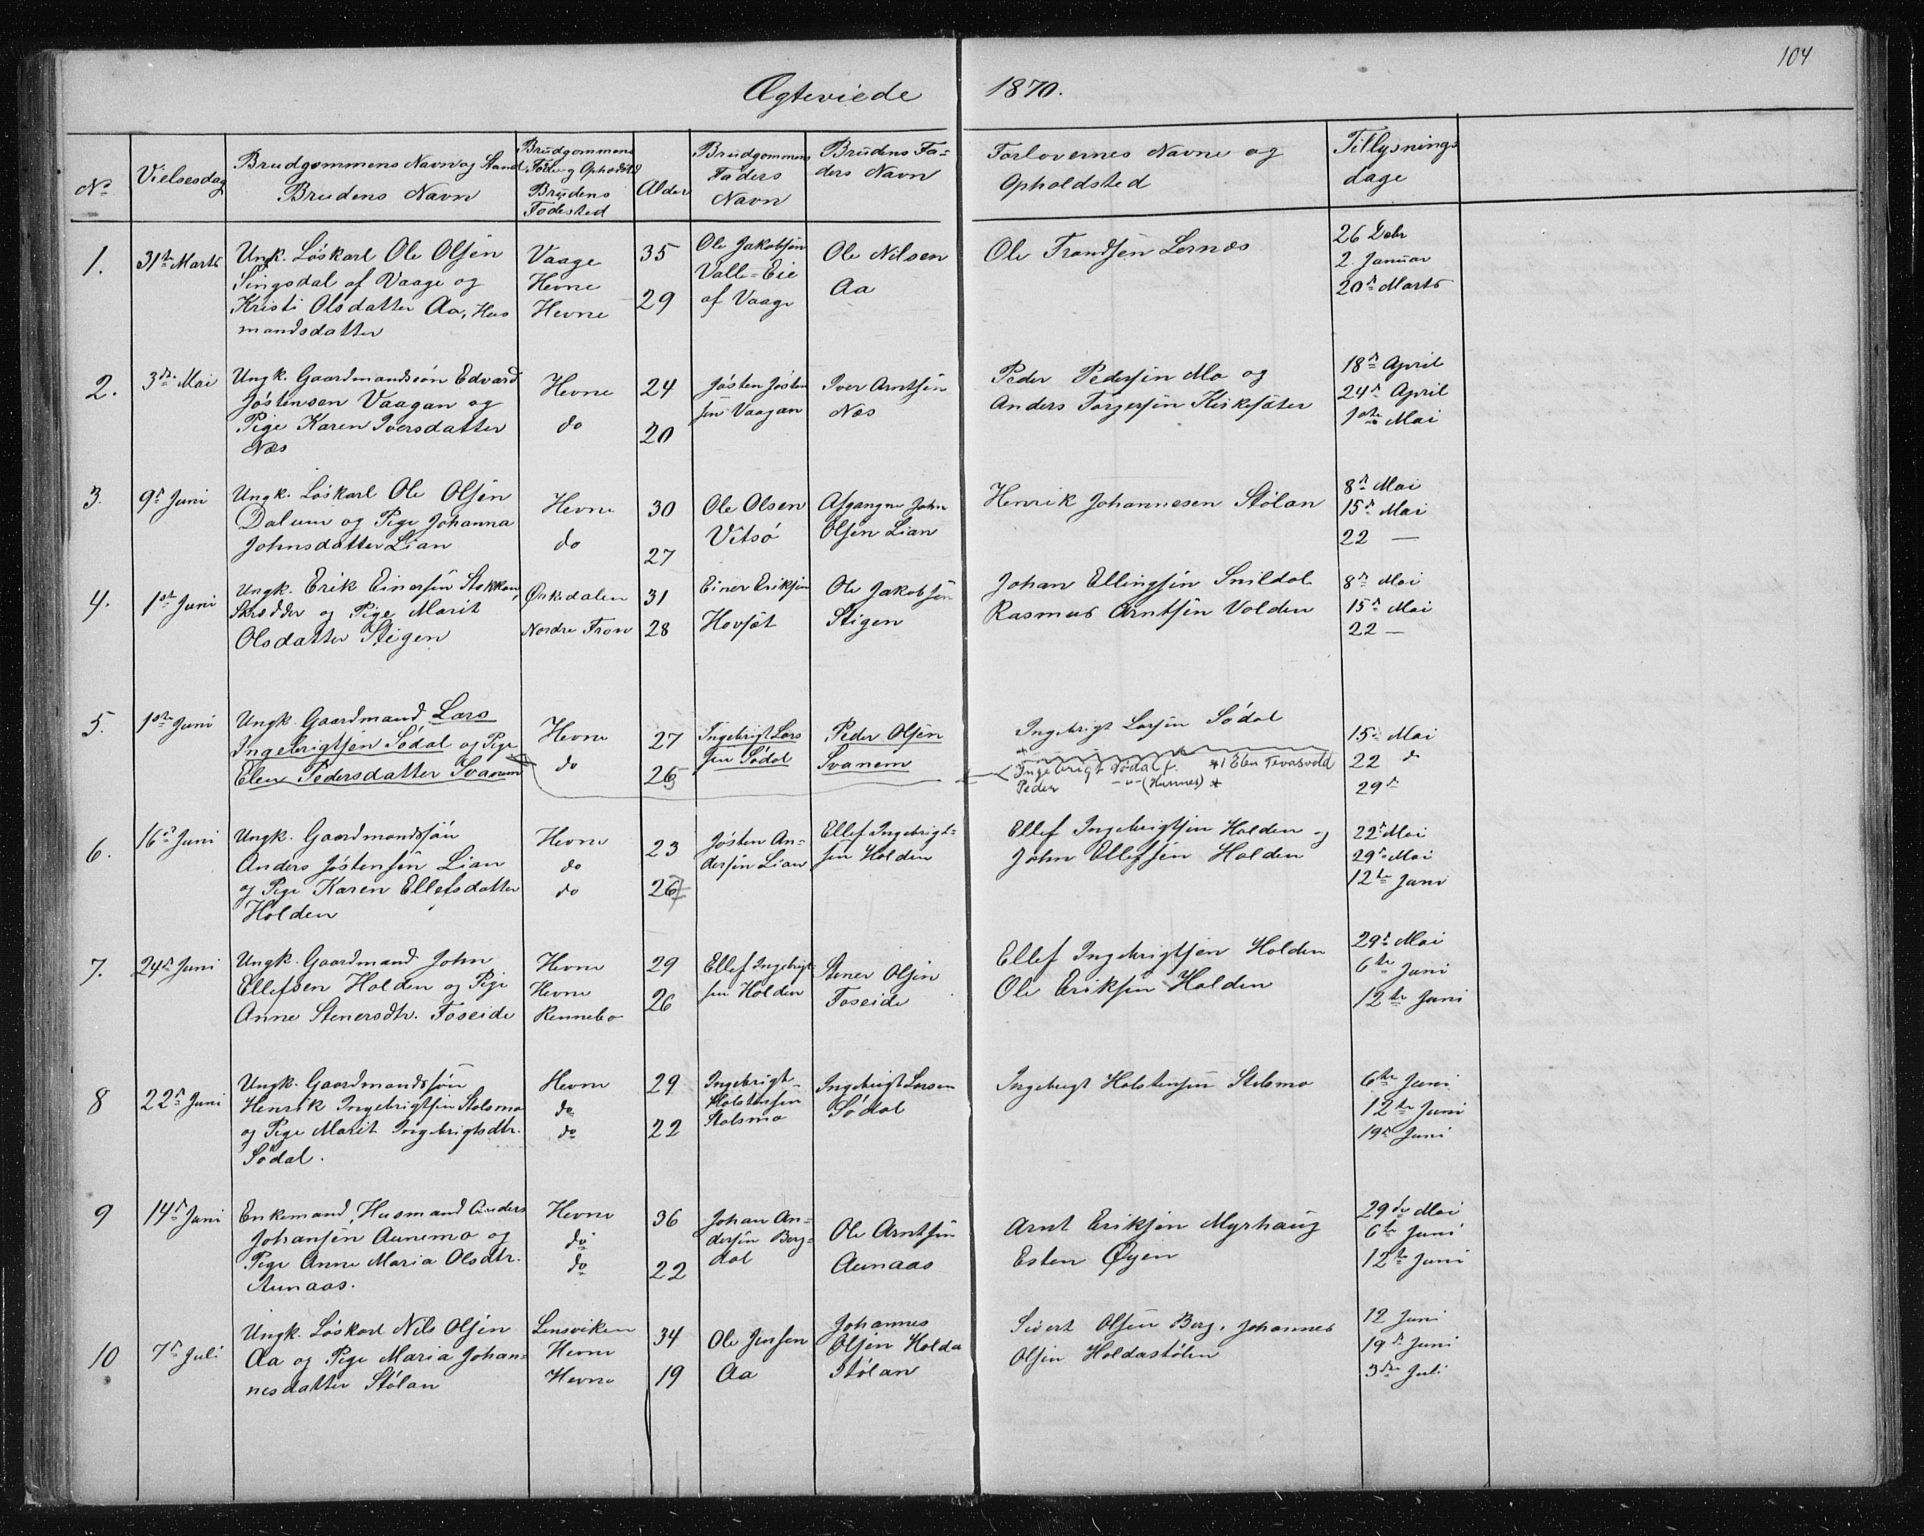 104
Ægteviede 1870.
No
Vielsesdag
Brudgommens Navn og Stand
Brudens Navn
Brudgommens
Føde og Opholdstd
Brudens
Fødested
Alder
Brudgommens
Faders
Navn
Brudens Fa-
ders Navn
Forlovernes Navne og
Opholdsted
Tillysnings
dage
1. 31te Marts
Ungk. Løskarl Ole Olsen
Singsdal af Vaage og
Kristi Olsdatter Aa, Hus
mandsdatter
Vaage
Hevne
Hevne
35
29
Ole Jakobsen
Valle-Eie
af Vaage
Ole Nilsen
Aa
Ole Trondsen Lernæs
26 Debr
2. Januar
20de Marts
2. 3die Mai
Ungk. Gaardmandssøn Edvard
Jøstensen Vaagan og
Pige Karen Iversdatter
Næs
Hevne
do
24
20
Jøsten Jøsten
sen Vaagan
Iver Arntsen
Næs
Peder Pedersen Mo og
Anders Torgersen Kirkesæter
18de April
24de April
1ste Mai
3. 9de Juni
Ungk. Løskarl Ole Olsen
Dalum og Pige Johanna
Johnsdatter Lian
Hevne
do
30
27
Ole Olsen
Vitsø
Afgangne John
Olsen Lian
Henrik Johannesen Stølan
8de Mai
15de Mai
22 —
4. 1ste Juni
Ungk. Erik Einersen Stokkan,
Skrædder og Pige Marit
Olsdatter Stigen
Orkedalen
Nordre Fron
31
28
Einer Eriksen
Hovsæt
Ole Jakobsen
Stigen
Johan Ellingsen Snildal
Rasmus Arntsen Volden
8de Mai
15de Mai
22 —
5. 1ste Juni
Ungk. Gaardmand Lars
Ingebrigtsen Sødal og Pige
Elen Pedersdatter Svanem
Hevne
do
27
25
Ingebrigt Lars
sen Sødal
Peder Olsen
Svanem
Ingebrigt Larsen Sødal
Ingebrigt Sødal f. * i Elen Tevasvold
Peder -"- (Hannes) *
15de Mai
22 d
29de
6. 16de Juni
Ungk. Gaardmandssøn
Anders Jøstensen Lian
og Pige Karen Ellefsdatter
Holden
Hevne
do
do
23
267
Jøsten An-
dersen Lian
Ellef Ingebrigt-
sen Holden
Ellef Ingebrigtsen Holden og
John Ellefsen Holden
22de Mai
29de Mai
12te Juni
7. 24de Juni
Ungk. Gaardmand John
Ellefsen Holden og Pige
Anne Stenersdtr. Foseide
Hevne
Hevne
Rennebo
29
26
Ellef Ingebrigt
sen Holden
Stener Olsen
Foseide
Ellef Ingebrigtsen Holden
Ole Eriksen Holden
29de Mai
6te Juni
12te Juni
8 22de Juni
Ungk. Gaardmandssøn
Henrik Ingebrigtsen Stolsmo
og Pige Marit Ingebrigtsdtr.
Sødal.
Hevne
do
do
29
22
Ingebrigt
Holstensen
Stolsmo
Ingebrigt Larsen
Sødal
Ingebrigt Holstensen Stolsmo
6te Juni
12te Juni
19de Juni
9 14de Juni
Enkemand, Husmand Anders
Johansen Aunemo og
Pige Anne Maria Olsdtr.
Aunaas.
Hevne
do
do
36
22
Johan An-
dersen Berg-
dal
Ole Arntsen
Aunaas
Arnt Eriksen Myrhaug
Esten Øyen
29de Mai
6te Juni
12te Juni
10 7de Juli
Ungk. Løskarl Nils Olsen
Aa og Pige Maria Johan-
nesdatter Stølan
Lensviken
Hevne
Hevne
34
19
Ole Jensen
Aa
Johannes
Olsen Holda
Stølan
Sivert Olsen Berg, Johannes
Olsen Holdastølen
12 Juni
19de Juni
3die Juli